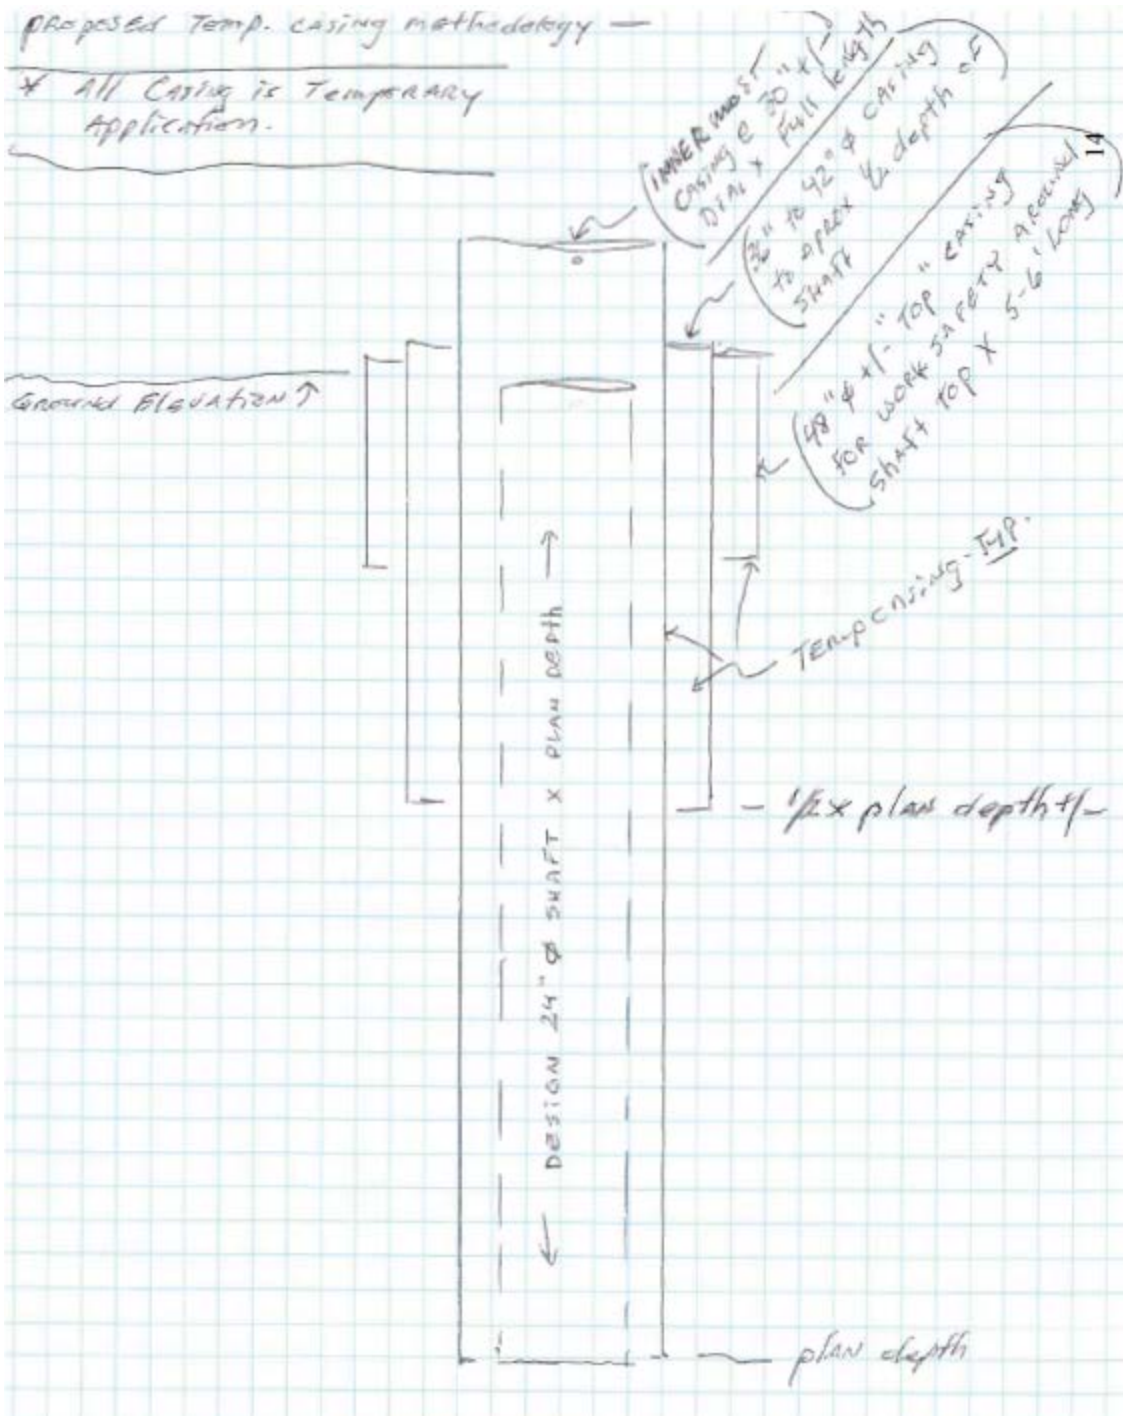 proposed Temp. casing methodology —
* All Casing is Temporary
Application.
(INNER most
Casing @ 30" +/-
DIA. x Full length
(36" to 42" ø CASING
to aprox ½ depth of
SHAFT
14
(48" ø +/- "TOP" CASING
FOR WORK SAFETY AROUND
SHAFT TOP X 5-6' LONG
Ground Elevation ↑
Temp casing - Typ.
← DESIGN 24" ø SHAFT X PLAN DEPTH →
- 1/2 x plan depth +/-
plan depth